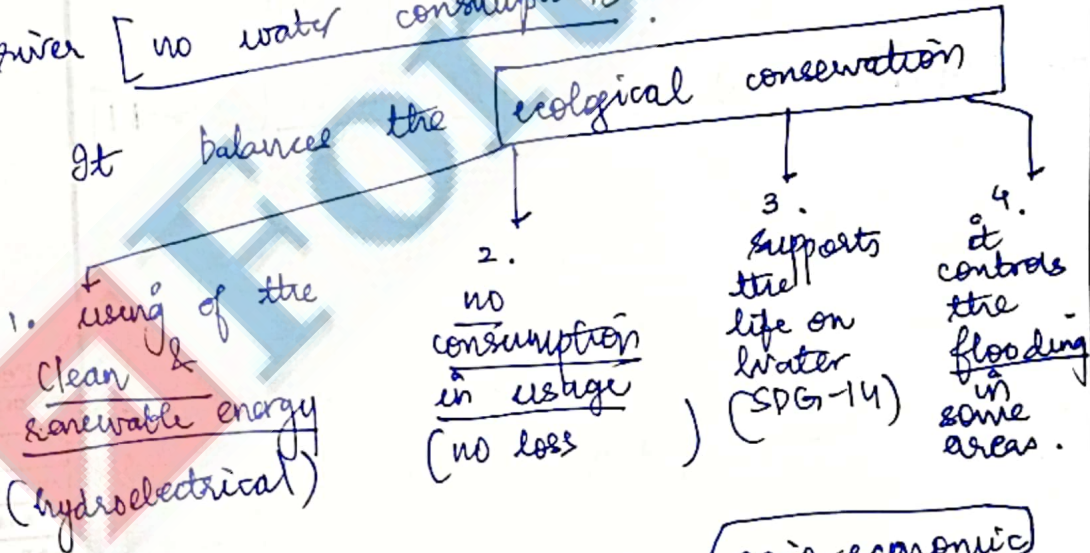 river [ no water
It balances the ecological conservation
1. using of the
clean &
renewable energy
(hydroelectrical)
2.
no
consumption
in usage
(no loss )
3.
supports
the
life on
water
(SDG-14)
4.
it
controls
the
flooding
in
some
areas.